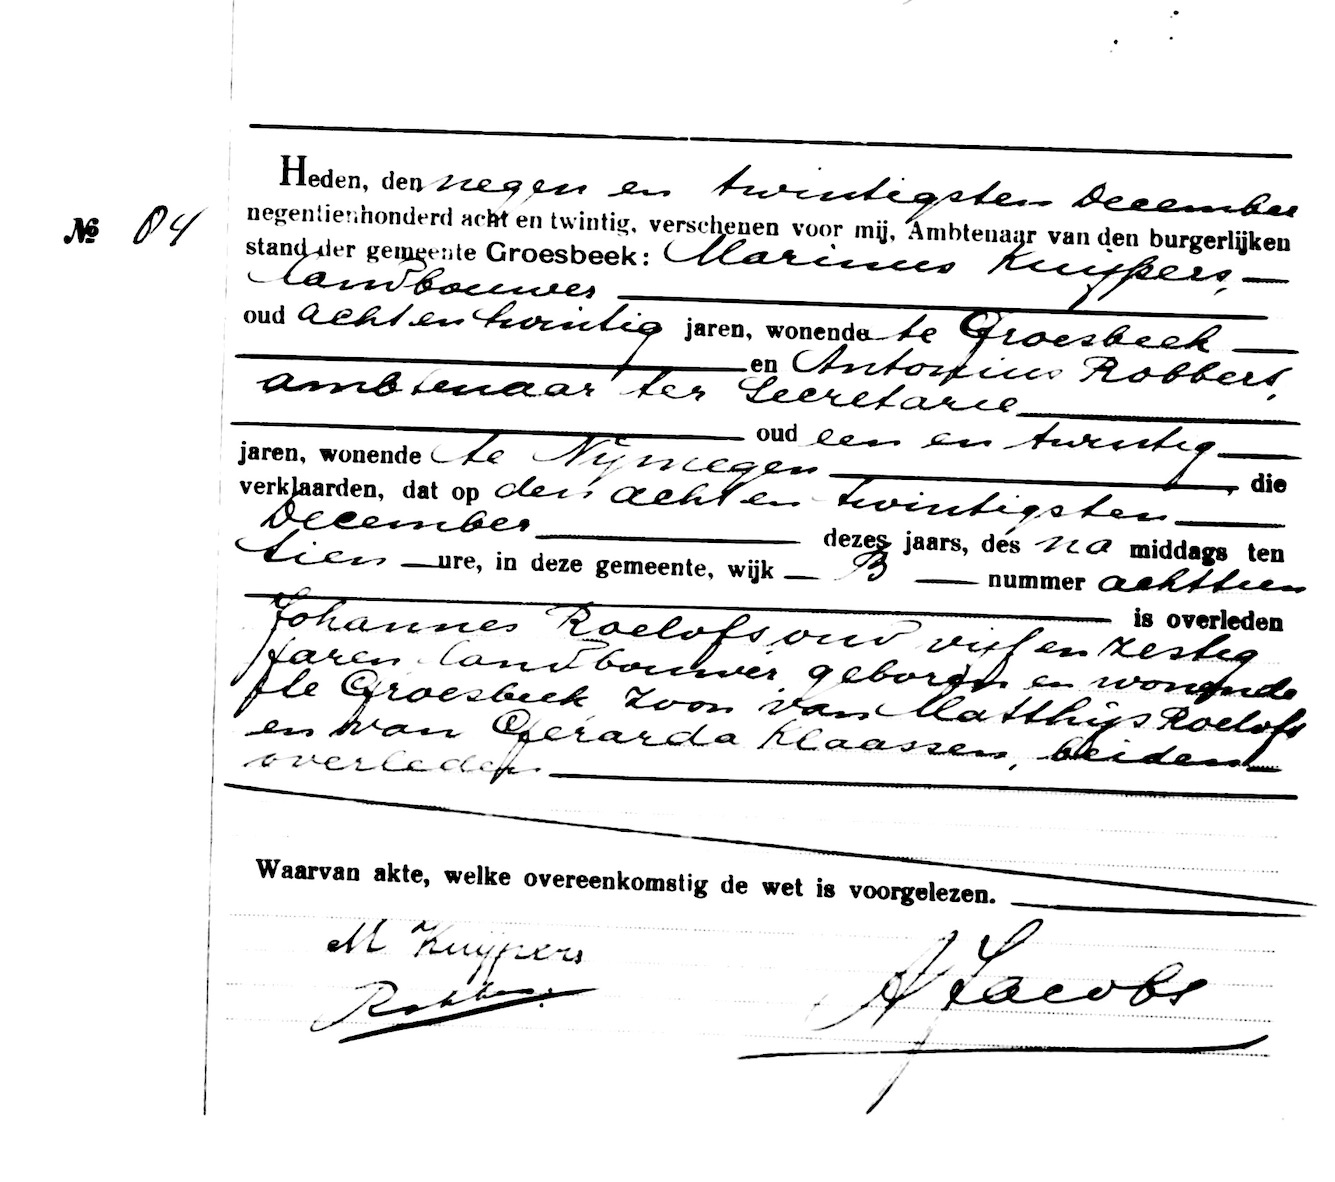 Heden, den negen en twintigsten December
negentienhonderd acht en twintig, verschenen voor mij, Ambtenaar van den burgerlijken
stand der gemeente Groesbeek: Marinus Kuijpers,
landbouwer
oud acht en twintig jaren, wonende te Groesbeek
en Antonius Robbers,
ambtenaar ter Secretarie
oud een en twintig
jaren, wonende te Nijmegen, die
verklaarden, dat op den acht en twintigsten
December dezes jaars, des na middags ten
tien ure, in deze gemeente, wijk B nummer achttien
is overleden
Johannes Roelofs oud vijf en zestig
jaren landbouwer geboren en wonende
te Groesbeek zoon van Matthijs Roelofs
en van Gerarda Klaassen, beiden
overleden
Waarvan akte, welke overeenkomstig de wet is voorgelezen.
M Kuijpers
Robbers.
A Jacobs
№